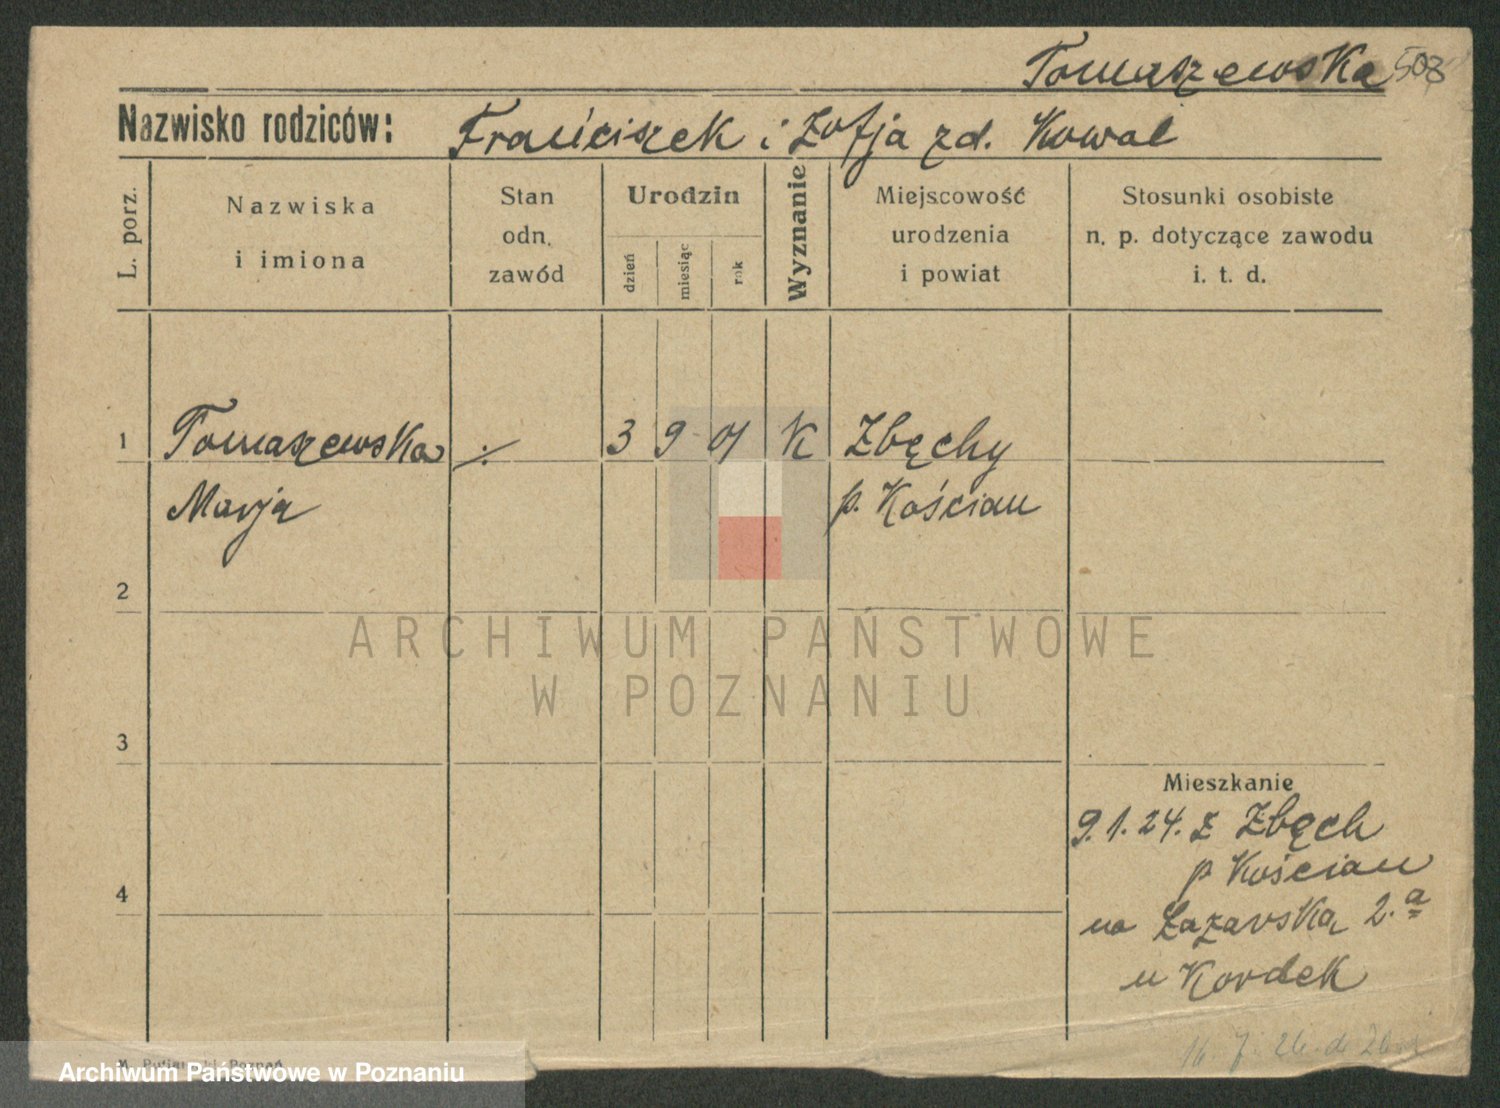 Tomaszewska 508
Nazwisko rodziców: Franciszek i Zofja zd. Kowal
L. porz.
Nazwiska
i imiona
Stan
odn.
zawód
Urodzin
dzień
miesiąc
rok
Wyznanie
Miejscowość
urodzenia
i powiat
Stosunki osobiste
n. p. dotyczące zawodu
i. t. d.
1 Tomaszewska ·/· 3 9 01 K Zbęchy
Marja p. Kościan
2
ARCHIWUM PAŃSTWOWE
W POZNANIU
3
Mieszkanie
9.1.24. z Zbęch
p Kościan
4
na Łazarską 2.a
u Kordek
16. 7. 26. do
Poznań
Archiwum Państwowe w Poznaniu